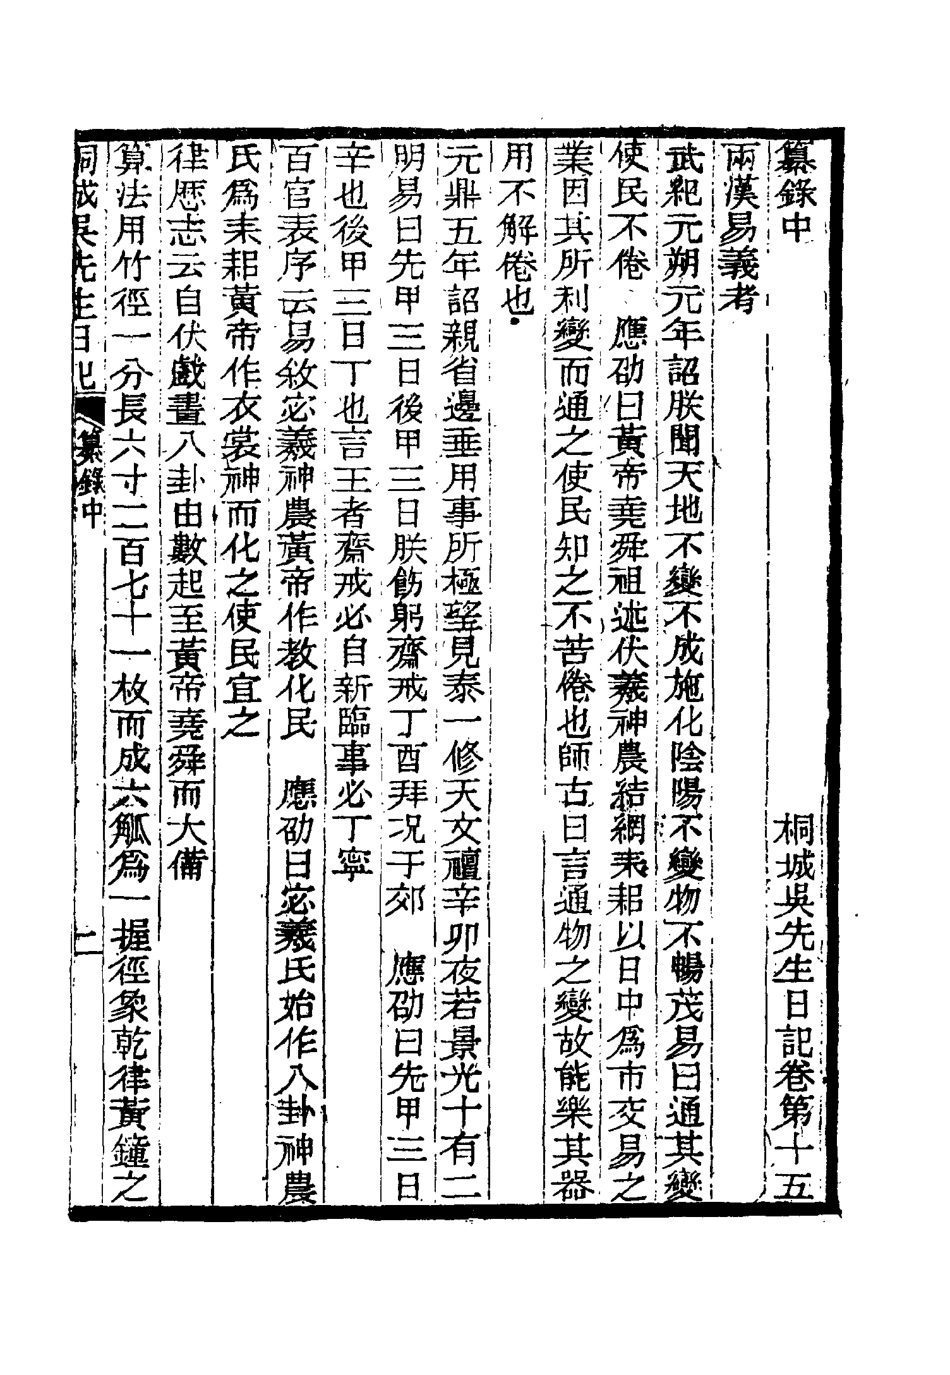 纂錄中　桐城吳先生日記卷第十五
兩漢易義考
武紀元朔元年詔朕聞天地不變不成施化陰陽不變物不暢茂易曰通其變
使民不倦　應劭曰黃帝堯舜祖述伏羲神農結網耒耜以日中爲市交易之
業因其所利變而通之使民知之不苦倦也師古曰言通物之變故能樂其器
用不解倦也
元鼎五年詔親省邊垂用事所極望見泰一修天文禮辛卯夜若景光十有二
明易曰先甲三日後甲三日朕飭躬齋戒丁酉拜况于郊　應劭曰先甲三日
辛也後甲三日丁也言王者齋戒必自新臨事必丁寧
百官表序云易敘宓羲神農黃帝作教化民　應劭曰宓羲氏始作八卦神農
氏爲耒耜黃帝作衣裳神而化之使民宜之
律厯志云自伏戲畫八卦由數起至黃帝堯舜而大備
算法用竹徑一分長六寸二百七十一枚而成六觚爲一握徑象乾律黃鐘之
桐城吳先生日記　纂錄中　二